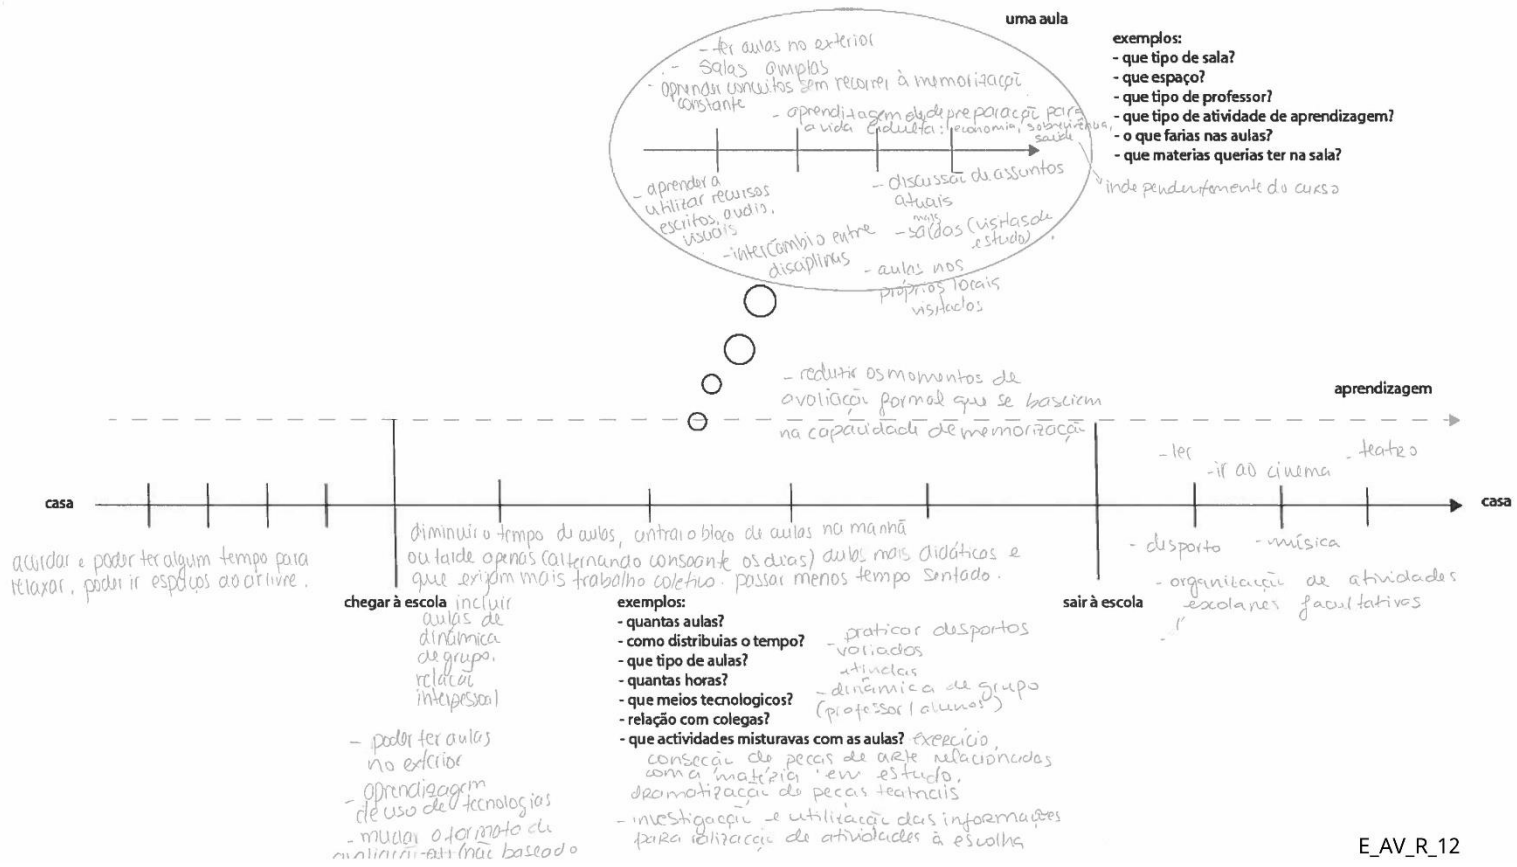 uma aula
exemplos:
- que tipo de sala?
- que espaço?
- que tipo de professor?
- que tipo de atividade de aprendizagem?
- o que farias nas aulas?
- que materias querias ter na sala?
- ter aulas no exterior
- salas amplas
- aprender conceitos sem recorrer à memorização
constante
- aprendizagem de preparação para
a vida adulta: economia, sobrevivência,
saúde
independentemente do curso
- aprender a
utilizar recursos
escritos, audio,
visuais
- intercâmbio entre
disciplinas
- discussão de assuntos
atuais
mais
- saídas (visitas de
estudo)
- aulas nos
próprios locais
visitados
- reduzir os momentos de
avaliação formal que se baseiem
na capacidade de memorização
aprendizagem
- ler
- ir ao cinema
- teatro
casa
casa
acordar e poder ter algum tempo para
relaxar, poder ir espaços ao ar livre.
diminuir o tempo de aulas, o bloco de aulas na manhã
ou tarde apenas (alternando consoante os dias) aulas mais didáticas e
que exijam mais trabalho coletivo. passar menos tempo sentado.
- desporto
- música
- organização de atividades
escolares facultativas
chegar à escola
incluir
aulas de
dinâmica
de grupo,
relação
interpessoal
- poder ter aulas
no exterior
- aprendizagem
de uso de tecnologias
- mudar o formato de
(não baseado
exemplos:
- quantas aulas?
- como distribuias o tempo?
- que tipo de aulas?
- quantas horas?
- que meios tecnologicos?
- relação com colegas?
- que actividades misturavas com as aulas? exercício,
de peças de arte relacionadas
com a matéria em estudo,
dramatização de peças teatrais
- investigação e utilização das informações
para de atividades à escolha
- praticar desportos
variados
- dinâmica de grupo
(professor/alunos)
sair à escola
E_AV_R_12